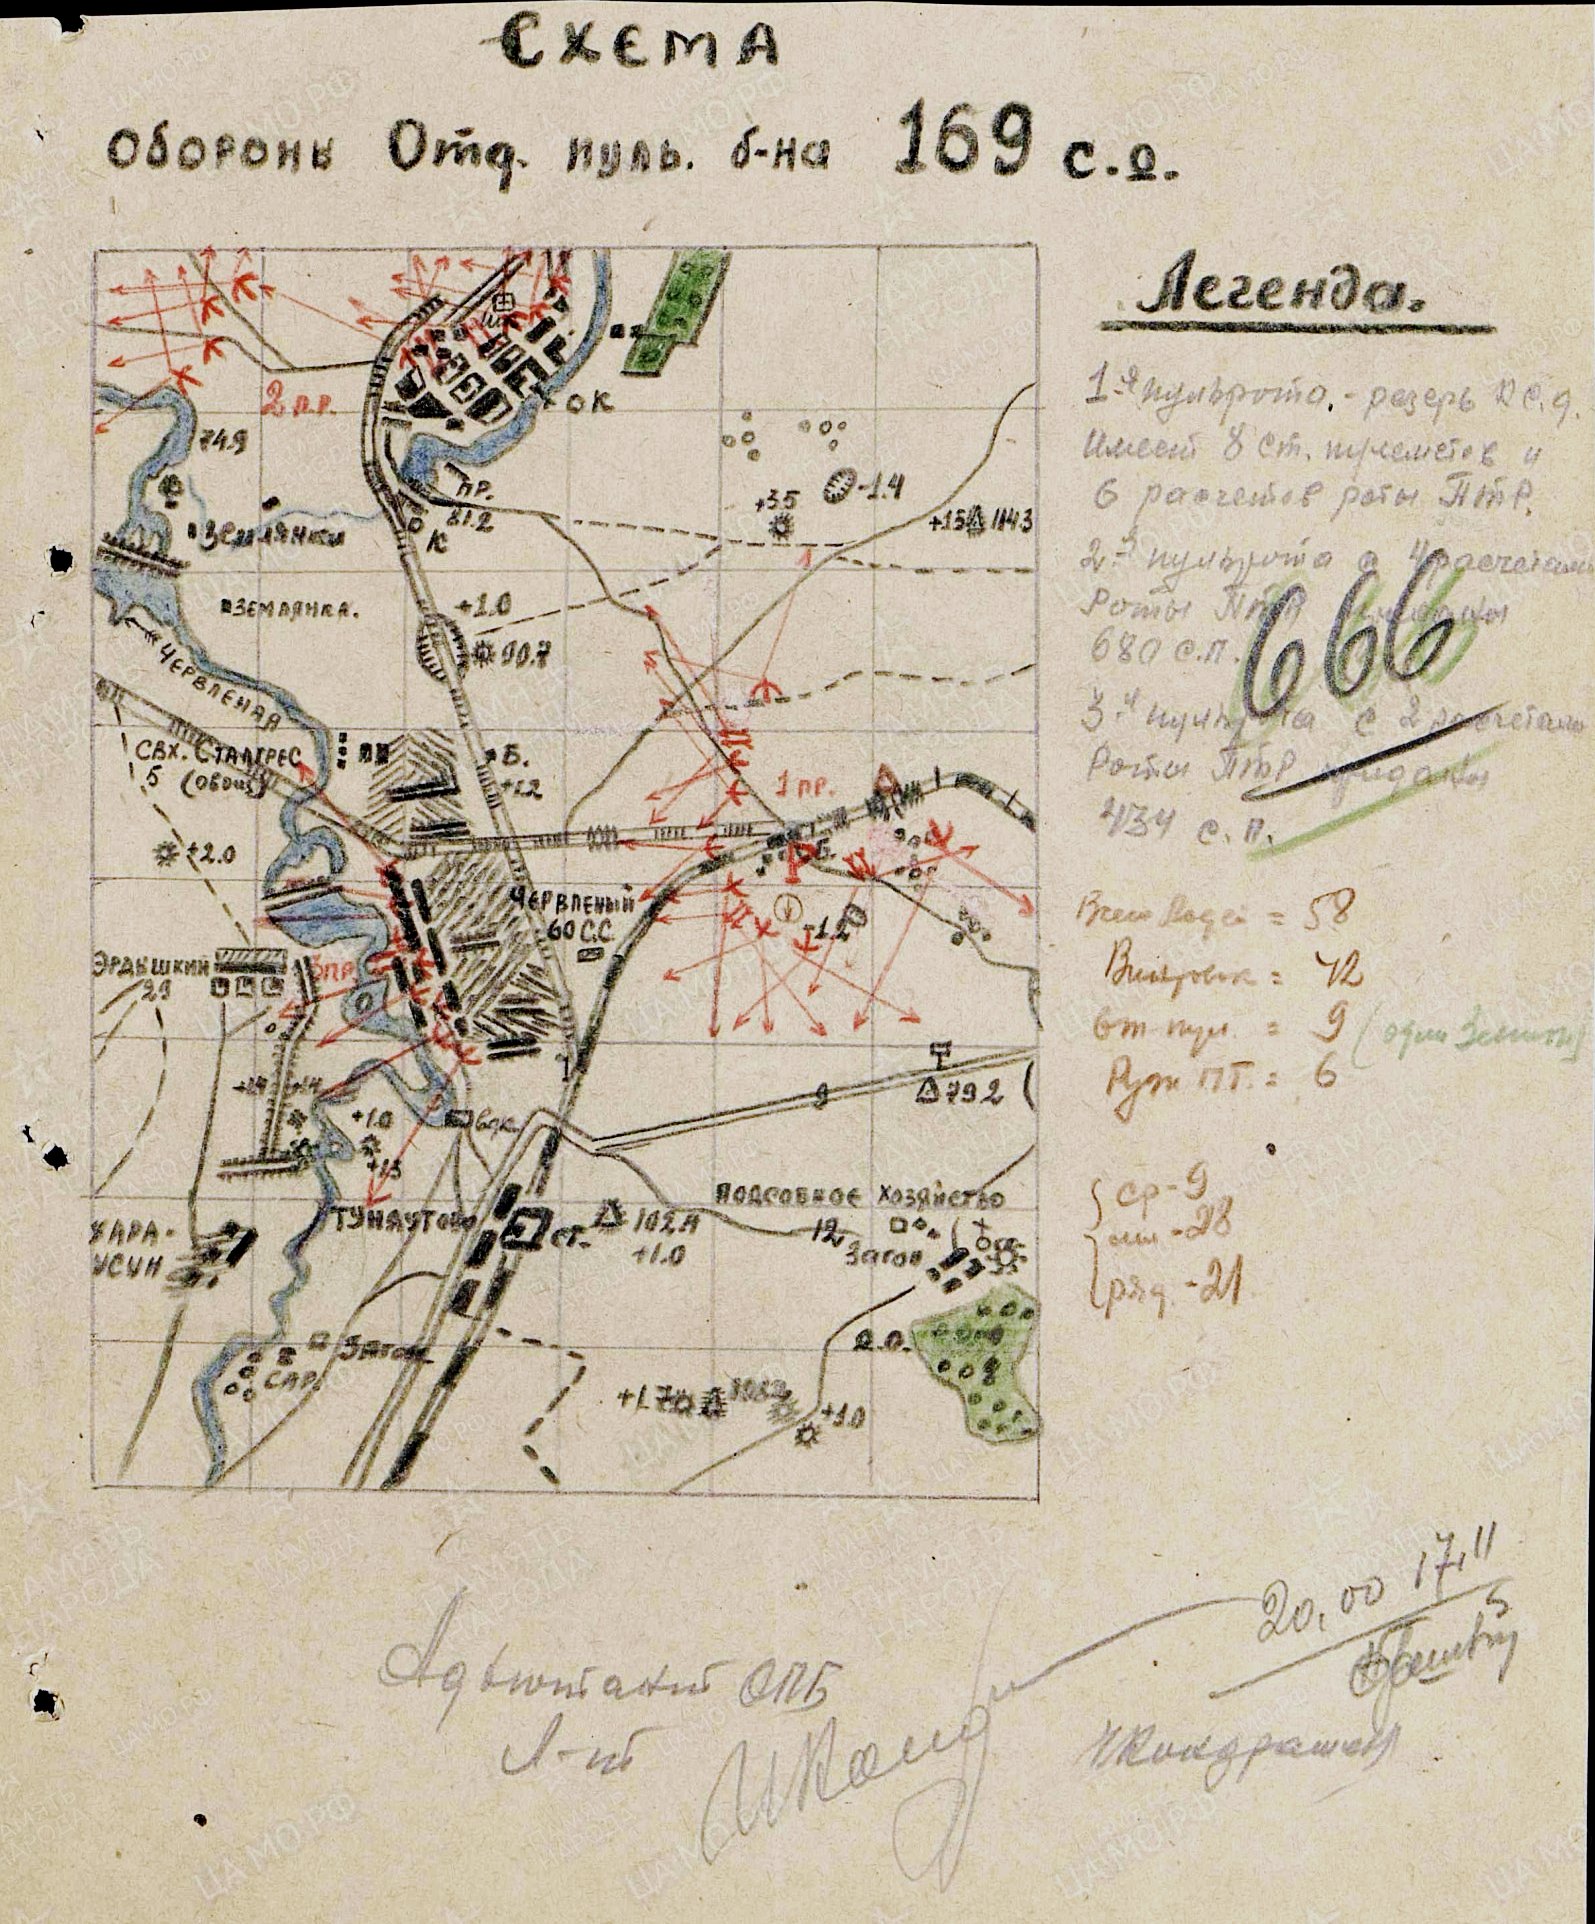 СХЕМА
Обороны Отд. пуль. б-на 169 с.д.
Легенда.
1-я пульрота. - резерв К с. д.
Имеет 8 ст. пулеметов и
6 расчетов роты ПТР.
2-я пульрота с 4 расчетами
Роты ПТР приданы
680 с.п.
666
3-я пульрота с 2 расчетами
Роты ПТР приданы
434 с.п.
Всего людей = 58
Винтовок = 42
ст. пул. = 9 (один
Руж ПТ. = 6
ср - 9
мл - 28
ряд. - 21
2 п.р.
ОК
74.9
пр.
81.2
К
Землянки
+3.5
-1.4
+15
114.3
Землянка.
+1.0
90.7
1
Червленая
Свх. Сталгрес
5 (овощ)
Б.
+1.2
1 пр.
+2.0
Б.
Червленый
60 С.С.
-1.2
Эрдышкий
29
3 пр.
79.2
9
+1.4
+1.4
+1.0
+1.3
вдк.
Подсобное хозяйство
12
Загон
Тундутово
ст.
102.4
+1.0
Хара-
Усун
Загон
сар.
+1.7
+1.0
20.00 17.11
Адъютант ОПБ
Л-нт
И Кондрашов